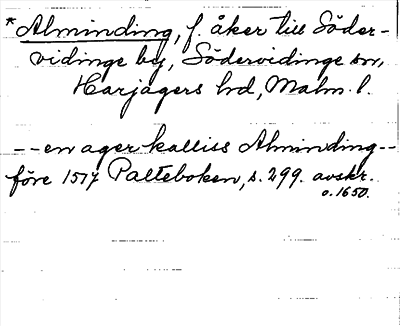 * Alminding, f. åker till Söder-
vidinge by, Södervidinge sn,
Harjagers hd, Malm. l.
-- en ager kalliss Alminding --
före 1517 Palteboken, s. 299. avskr.
o. 1650.